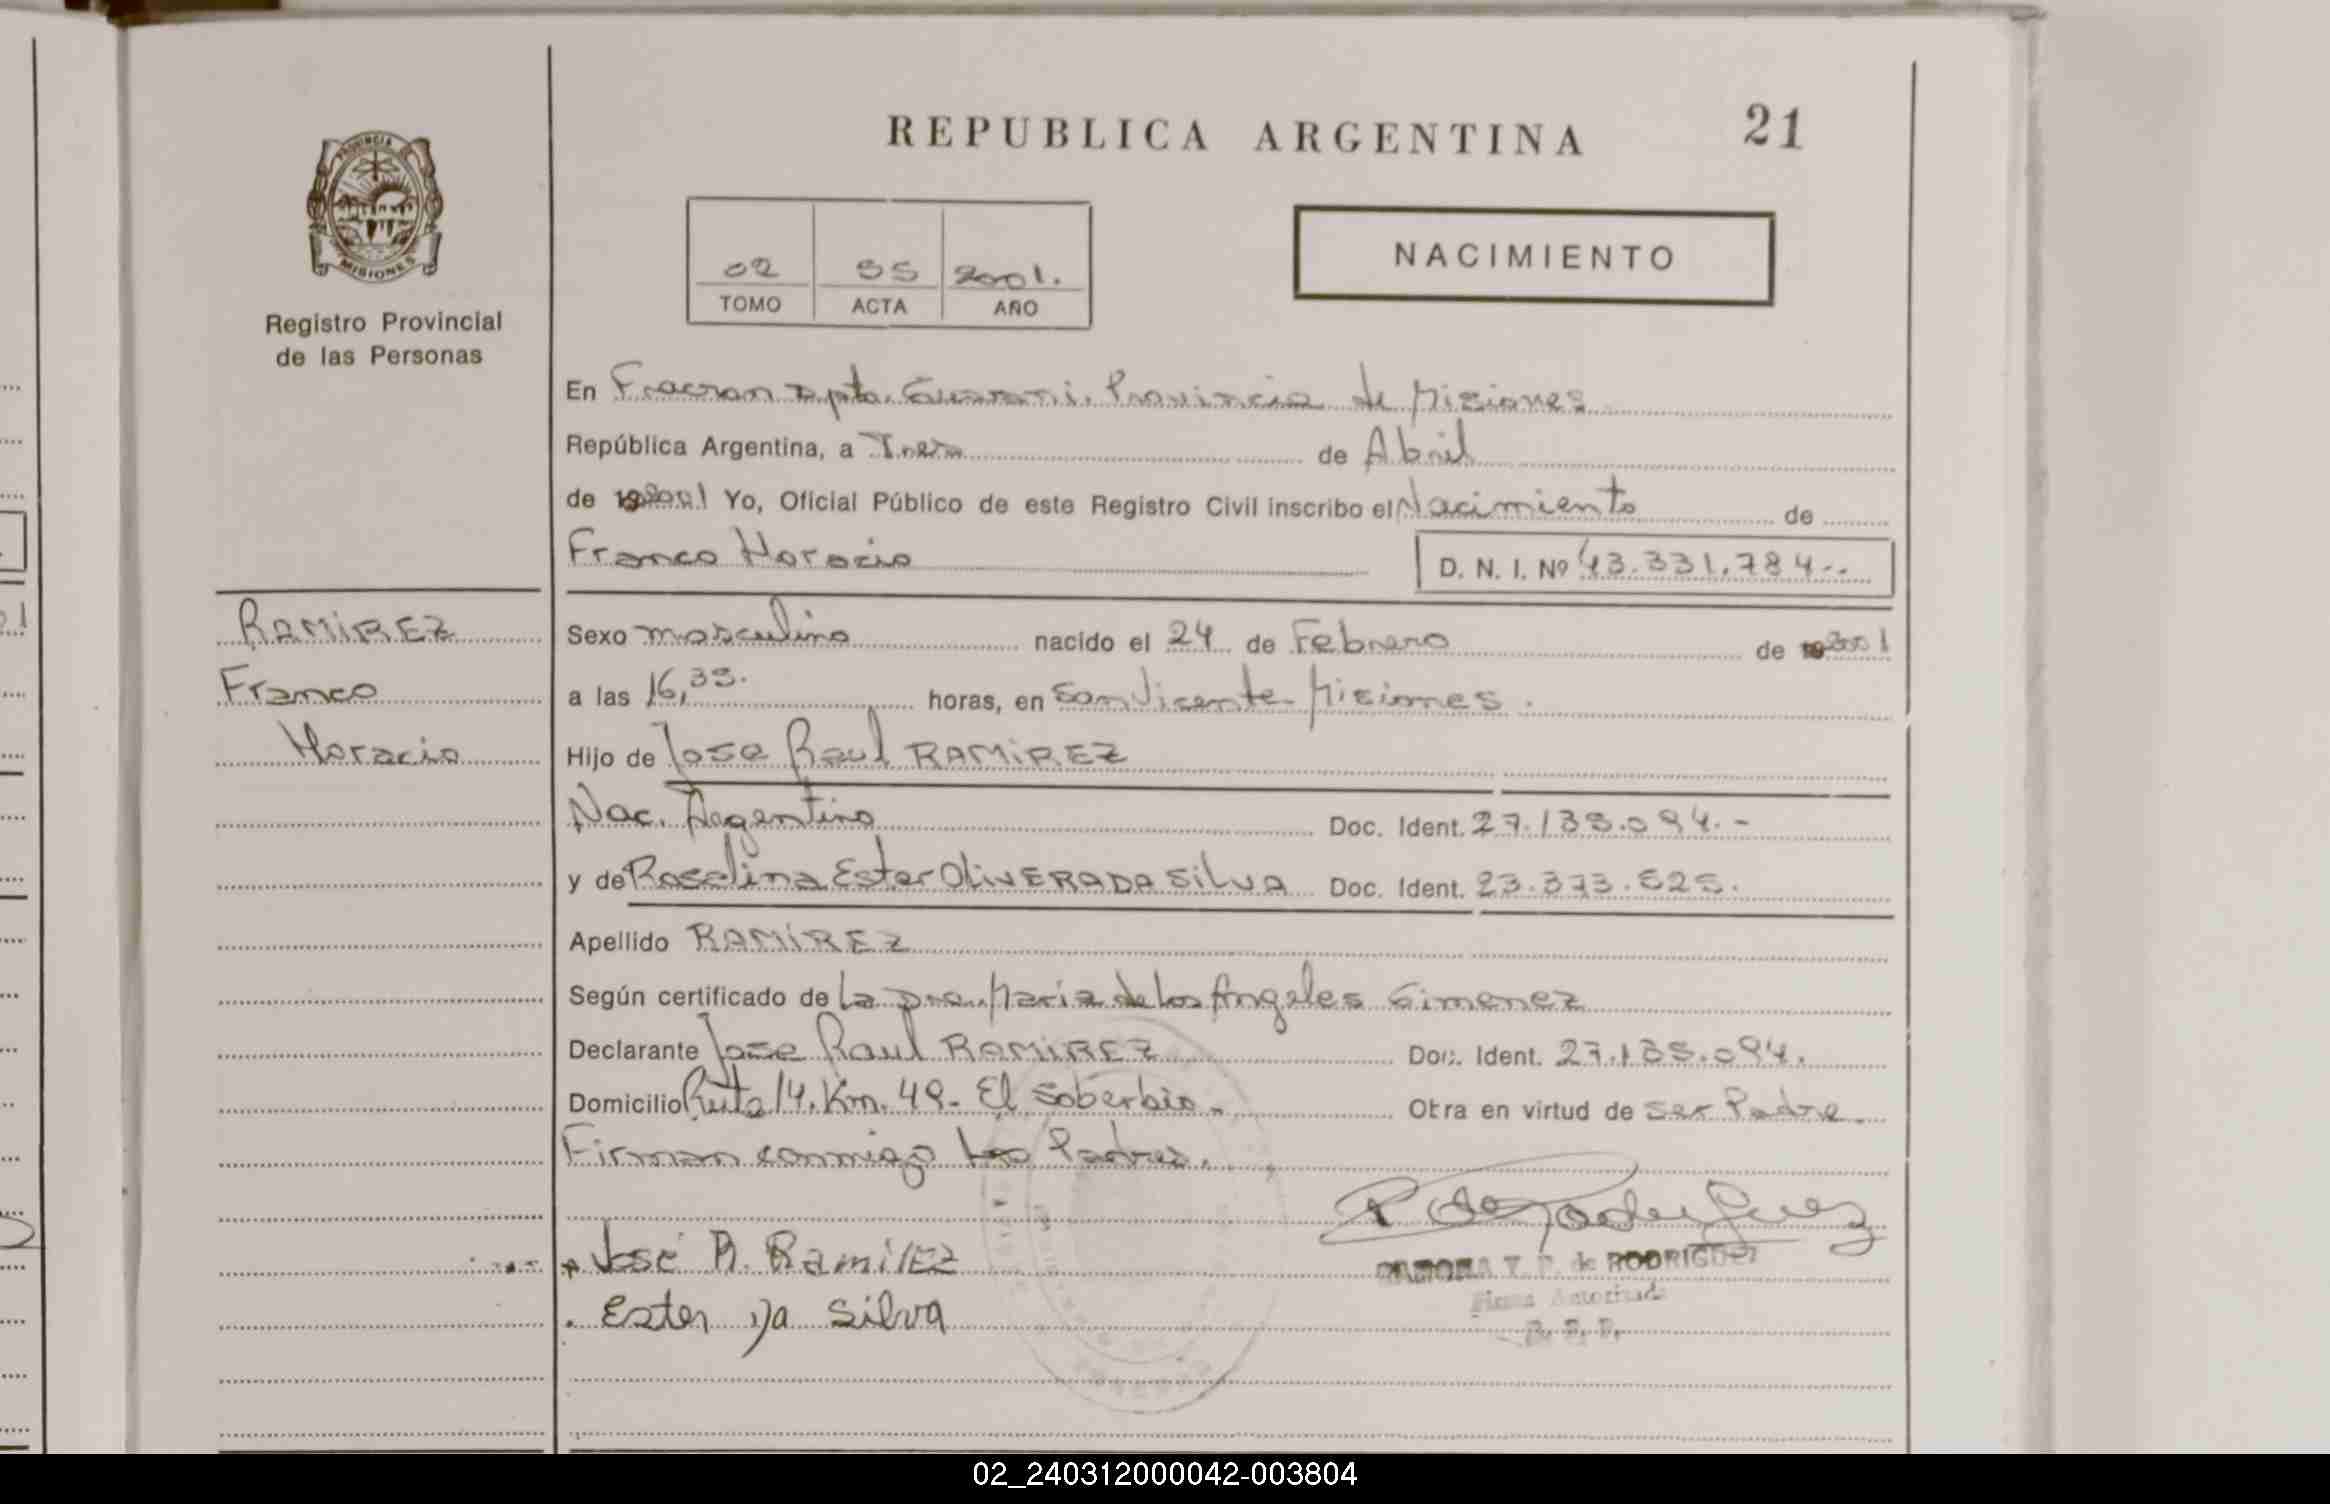 REPUBLICA ARGENTINA
21
PROVINCIA DE
MISIONES
Registro Provincial
de las Personas
02 55 2001.
TOMO ACTA AÑO
NACIMIENTO
En Fracran Dpto. Guarani. Provincia de Misiones
República Argentina, a Tres de Abril
de 2001 Yo, Oficial Público de este Registro Civil inscribo el Nacimiento de
Franco Horacio
D. N. I. Nº 43.331.784.-
RAMIREZ
Franco
Horacio
Sexo masculino nacido el 24 de Febrero de 2001
a las 16,35. horas, en San Vicente- Misiones.
Hijo de Jose Raul RAMIREZ
Nac. Argentino Doc. Ident. 27.135.094.-
y de Roselina Ester OLIVERA DA SILVA Doc. Ident. 23.373.525.
Apellido RAMIREZ
Según certificado de la Dra. Maria de Los Angeles Gimenez
Declarante Jose Raul RAMIREZ Doc. Ident. 27.135.094.
Domicilio Ruta 14. Km. 49- El Soberbio.- Obra en virtud de ser Padre.
Firman conmigo los Padres.
José R. Ramirez
Ester Da Silva
RAMONA de RODRIGUEZ
Firma Autorizada